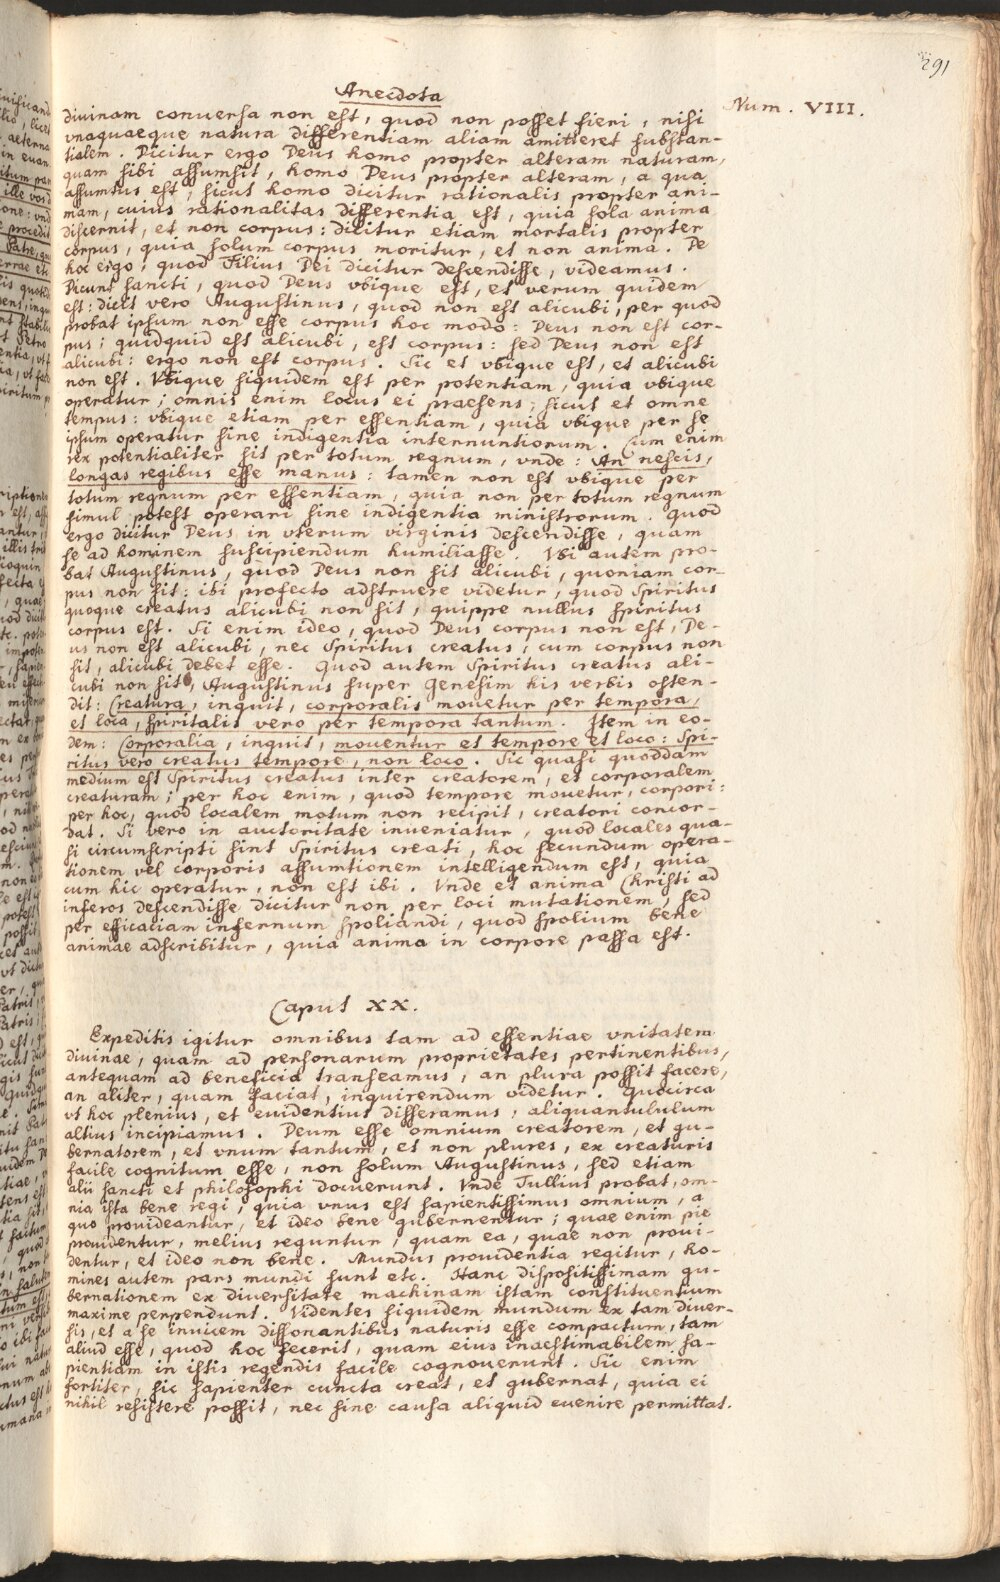 291
Anecdota
Num. VIII.
diuinam conuersa non est, quod non posset fieri, nisi
vnaquaeque natura differentiam aliam amitteret substan-
tialem. Dicitur ergo Deus homo propter alteram naturam,
quam sibi assumsit, homo Deus propter alteram, a qua
assumtus est; sicut homo dicitur rationalis propter ani-
mam, cuius rationalitas differentia est, quia sola anima
discernit, et non corpus: dicitur etiam mortalis propter
corpus, quia solum corpus moritur, et non anima. De
hoc ergo, quod Filius Dei dicitur descendisse, videamus.
Dicunt sancti, quod Deus vbique est, et verum quidem
est: dicit vero Augustinus, quod non est alicubi, per quod
probat ipsum non esse corpus hoc modo: Deus non est cor-
pus; quidquid est alicubi, est corpus: sed Deus non est
alicubi: ergo non est corpus. Sic et vbique est, et alicubi
non est. Vbique siquidem est per potentiam, quia vbique
operatur; omnis enim locus ei praesens, sicut et omne
tempus: vbique etiam per essentiam, quia vbique per se
ipsum operatur sine indigentia internuntiorum. Cum enim
rex potentialiter sit per totum regnum, vnde: An nescis,
longas regibus esse manus: tamen non est vbique per
totum regnum per essentiam, quia non per totum regnum
simul potest operari sine indigentia ministrorum. Quod
ergo dicitur Deus in vterum virginis descendisse, quam
se ad hominem suscipiendum humiliasse. Vbi autem pro-
bat Augustinus, quod Deus non sit alicubi, quoniam cor-
pus non sit: ibi profecto adstruere videtur, quod Spiritus
quoque creatus alicubi non sit, quippe nullus spiritus
corpus est. Si enim ideo, quod Deus corpus non est, De-
us non est alicubi, nec Spiritus creatus, cum corpus non
sit, alicubi debet esse. Quod autem Spiritus creatus ali-
cubi non sit, Augustinus super Genesim his verbis osten-
dit: Creatura, inquit, corporalis mouetur per tempora,
et loca, spiritalis vero per tempora tantum. Item in eo-
dem: Corporalia, inquit, mouentur et tempore et loco: Spi-
ritus vero creatus tempore, non loco. Sic quasi quoddam
medium est Spiritus creatus inter creatorem, et corporalem
creaturam; per hoc enim, quod tempore mouetur, corpori:
per hoc, quod localem motum non recipit, creatori concor-
dat. Si vero in auctoritate inueniatur, quod locales qua-
si circumscripti sint Spiritus creati, hoc secundum opera-
tionem vel corporis assumtionem intelligendum est, quia
cum hic operatur, non est ibi. Vnde et anima Christi ad
inferos descendisse dicitur non per loci mutationem, sed
per efficaciam infernum spoliandi, quod spolium bene
animae adscribitur, quia anima in corpore passa est.
Caput XX.
Expeditis igitur omnibus tam ad essentiae vnitatem
diuinae, quam ad personarum proprietates pertinentibus,
antequam ad beneficia transeamus, an plura possit facere,
an aliter, quam faciat, inquirendum videtur. Quocirca
vt hoc plenius, et euidentius differamus, aliquantululum
altius incipiamus. Deum esse omnium creatorem, et gu-
bernatorem, et vnum tantum, et non plures, ex creaturis
facile cognitum esse, non solum Augustinus, sed etiam
alii sancti et philosophi docuerunt. Vnde Tullius probat, om-
nia ista bene regi, quia vnus est sapientissimus omnium, a
quo prouideantur, et ideo bene gubernentur; quae enim pie
prouidentur, melius reguntur, quam ea, quae non proui-
dentur, et ideo non bene. Mundus prouidentia regitur, ho-
mines autem pars mundi sunt etc. Hanc dispositissimam gu-
bernationem ex diuersitate machinam istam constituentium
maxime perpendunt. Videntes siquidem mundum ex tam diuer-
sis, et a se inuicem dissonantibus naturis esse compactum, tam
aliud esse, quod hoc fecerit, quam eius inaestimabilem sa-
pientiam in istis regendis facile cognouerunt. Sic enim
fortiter, sic sapienter cuncta creat, et gubernat, quia ei
nihil resistere possit, nec sine causa aliquid euenire permittat.